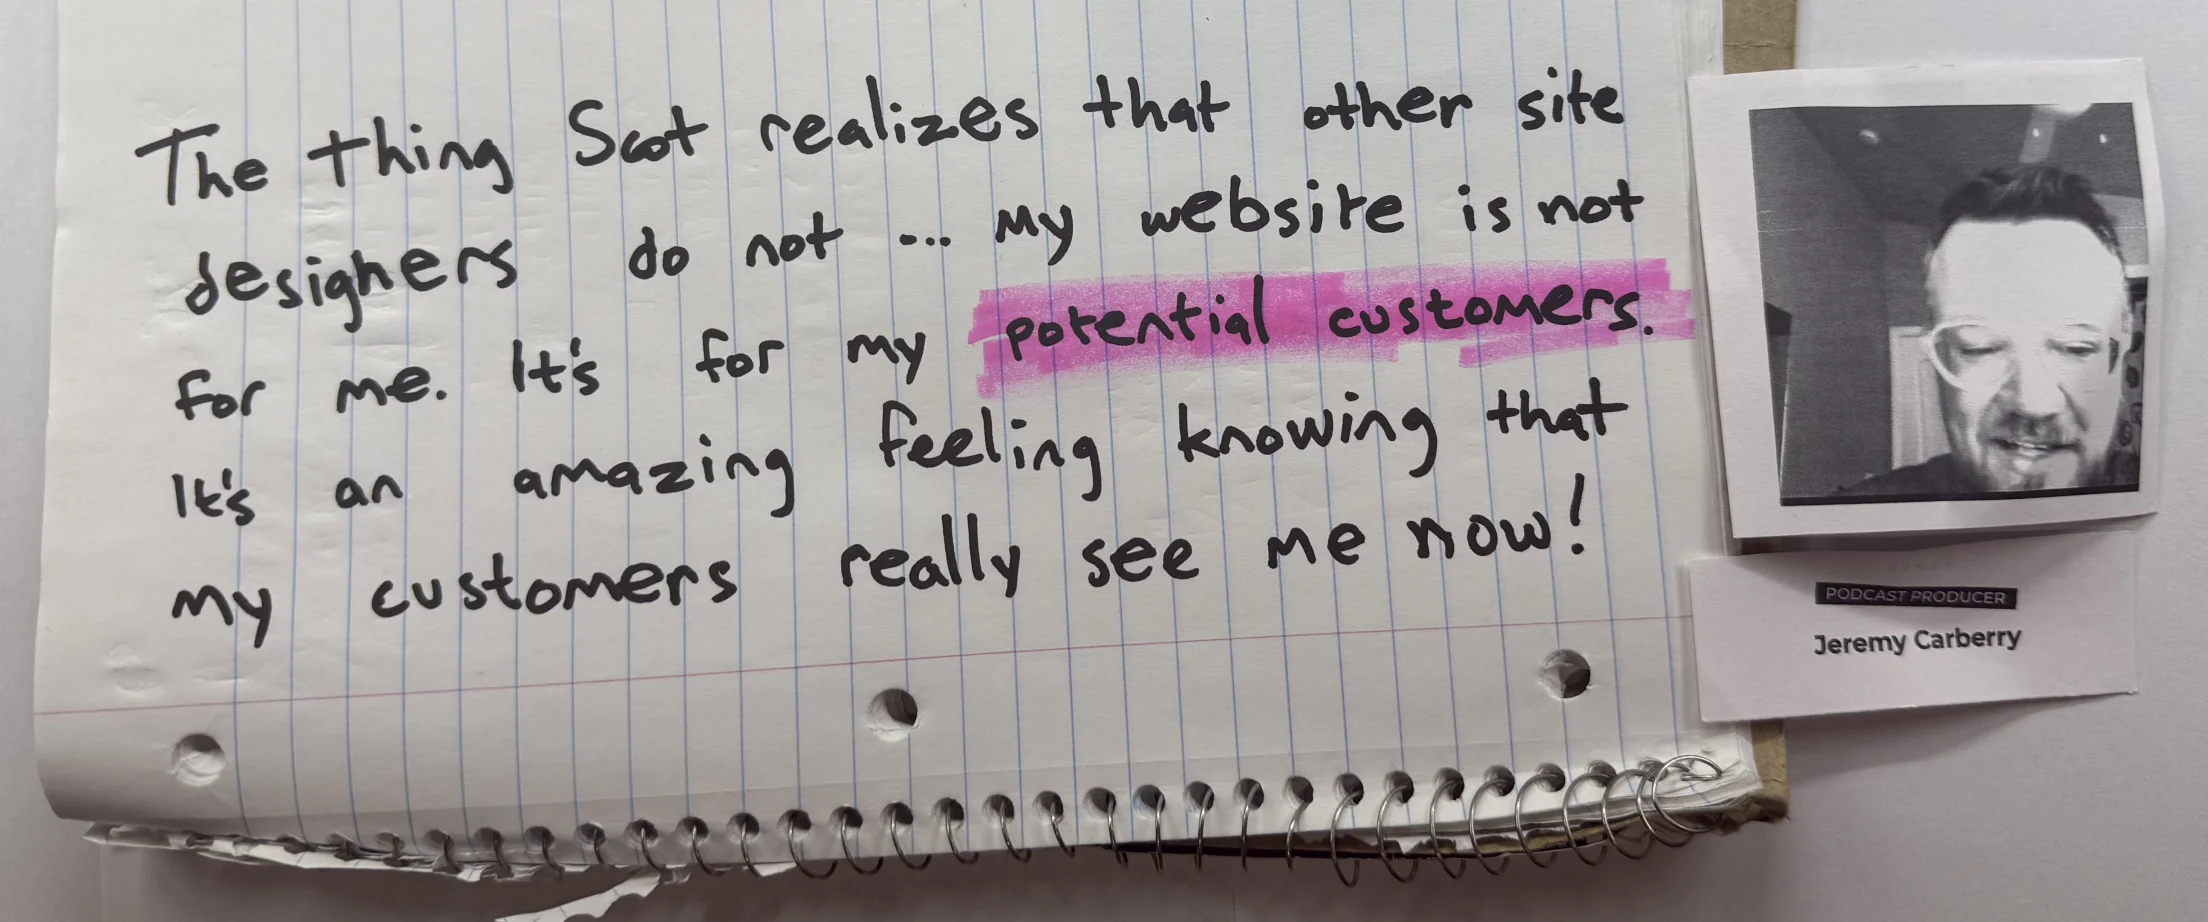 The thing Scot realizes that other site
designers do not ... my website is not
for me. It's for my potential customers.
It's an amazing feeling knowing that
my customers really see me now!
PODCAST PRODUCER
Jeremy Carberry